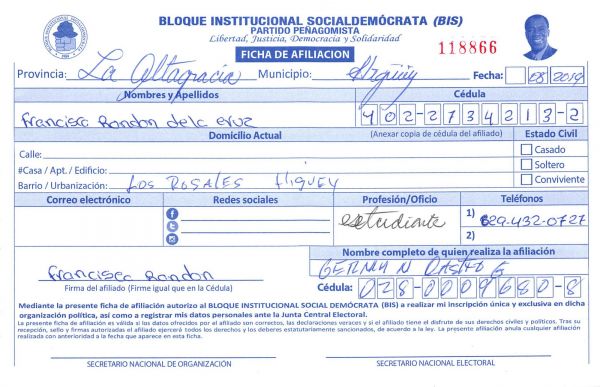 BLOQUE INSTITUCIONAL SOCIALDEMÓCRATA (BIS)
PARTIDO PEÑAGOMISTA
Libertad, Justicia, Democracia y Solidaridad
FICHA DE AFILIACION
118866
Provincia: La Altagracia Municipio: Higüey Fecha: 08 2019
Nombres y Apellidos Cédula
Francisco Rondon dela cruz 402-2734213-2
Domicilio Actual (Anexar copia de cédula del afiliado) Estado Civil
Calle: Casado
#Casa / Apt. / Edificio: Soltero
Barrio / Urbanización: LOS ROSALES Higuey Conviviente
Correo electrónico Redes sociales Profesión/Oficio Teléfonos
estudiante 1) 829-432-0727
2)
Nombre completo de quien realiza la afiliación
Francisco Rondon GERMAN CASTRO G
Firma del afiliado (Firme igual que en la Cédula) Cédula: 028-0009680-8
Mediante la presente ficha de afiliación autorizo al BLOQUE INSTITUCIONAL SOCIAL DEMÓCRATA (BIS) a realizar mi inscripción única y exclusiva en dicha
organización política, así como a registrar mis datos personales ante la Junta Central Electoral.
La presente ficha de afiliación es válida si los datos ofrecidos por el afiliado son correctos, las declaraciones veraces y si el afiliado tiene el disfrute de sus derechos civiles y políticos. Tras su
recepción, sello y firmas autorizadas el afiliado ejercerá todos los derechos y los deberes estatutariamente sancionados, de acuerdo a la ley. La presente afiliación anula cualquier afiliación
realizada con anterioridad a la fecha que aparece en esta ficha.
SECRETARIO NACIONAL DE ORGANIZACIÓN SECRETARIO NACIONAL ELECTORAL